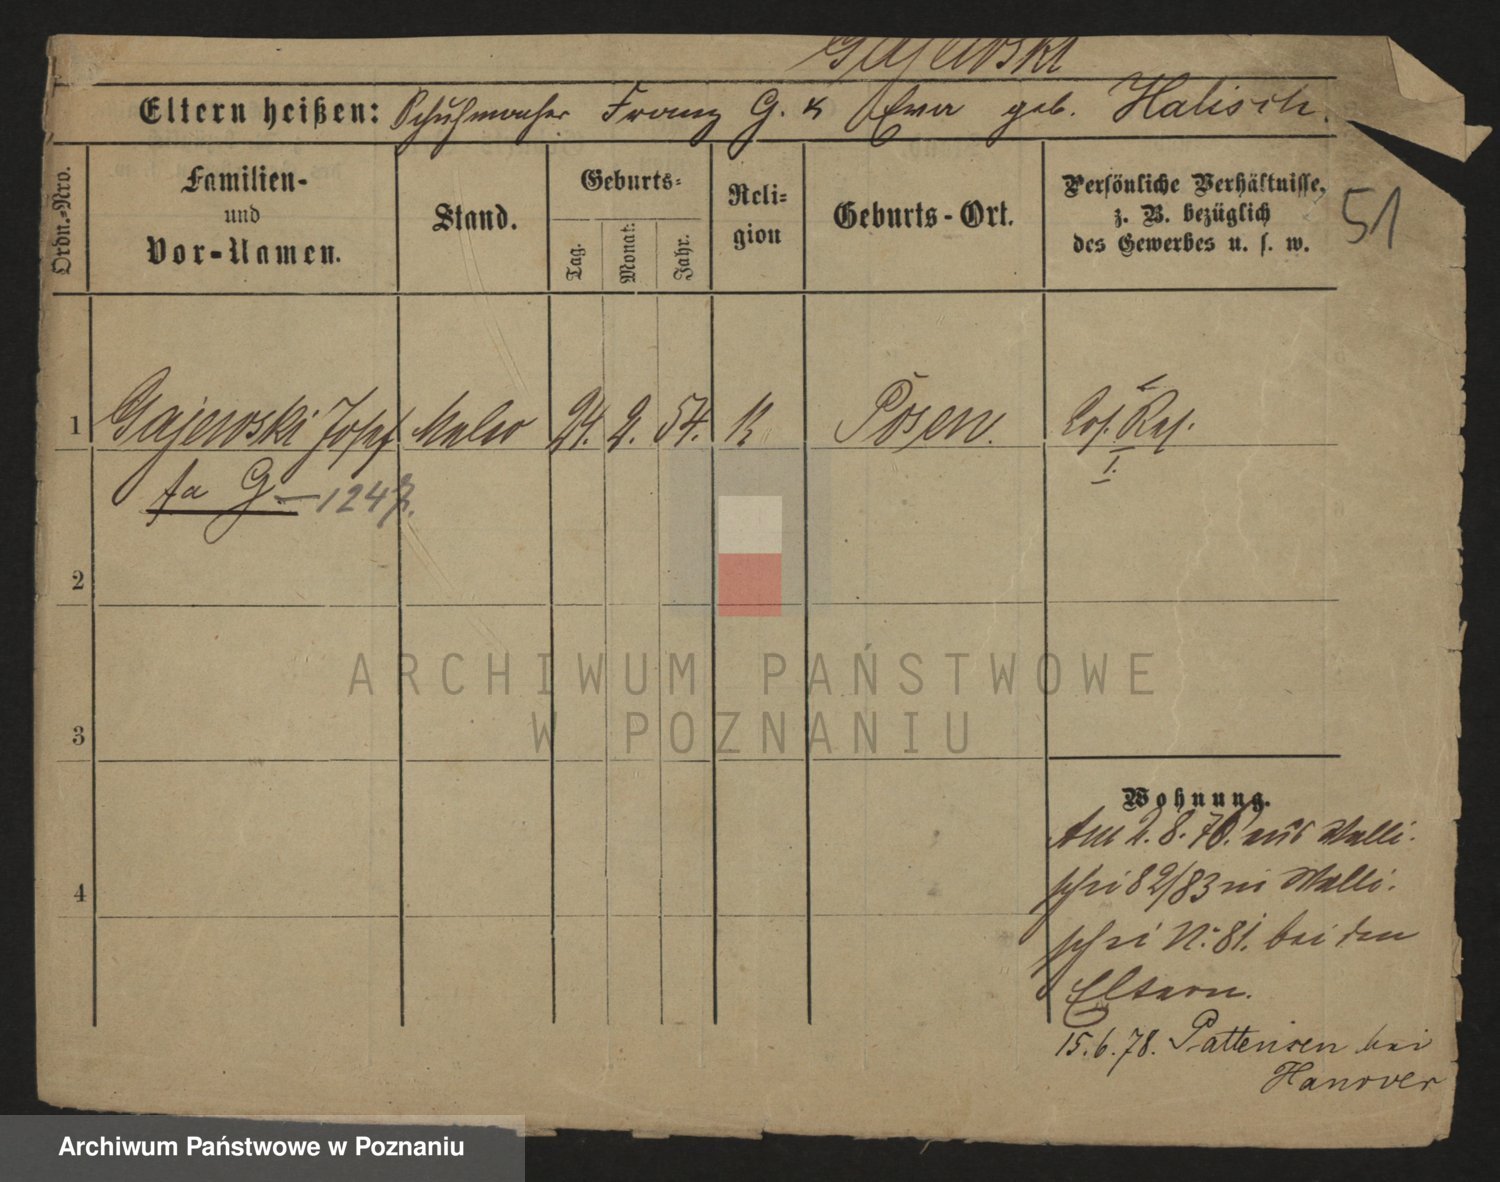 Gajewski
Eltern heißen: Schuhmacher Franz G. & Eva geb. Halisch.
Ordn.-Nro.
Familien-
und
Vor-Namen.
Stand.
Geburts-
Tag.
Monat.
Jahr.
Reli-
gion
Geburts-Ort.
Persönliche Verhältnisse,
z. B. bezüglich
des Gewerbes u. s. w.
51
1 Gajewski Josef Maler 24. 2. 54. K Posen.
I.
fa G — 1247.
2
3
4
Wohnung.
Am 2. 8. 70. aus Walli-
schei 82/83 n. Walli-
schei N. 81. bei den
Eltern.
15. 6. 78. Pattensen bei
Hanover
ARCHIWUM PAŃSTWOWE
W POZNANIU
Archiwum Państwowe w Poznaniu